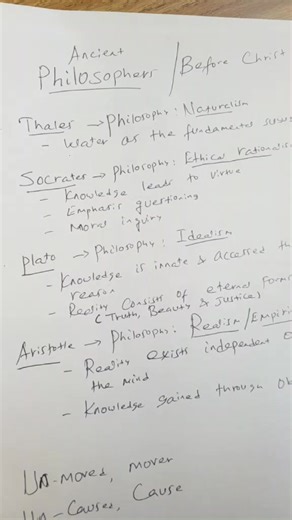 Ancient
Philosophers / Before Christ
Thales → Philosophy: Naturalism
- Water as the fundamental
Socrates → Philosophy: Ethical rationalism
- Knowledge leads to virtue
- Emphasis questioning
- Moral inquiry
Plato → Philosophy: Idealism
- Knowledge is innate & accessed
reason
- Reality consists of eternal forms
(Truth, Beauty & Justice)
Aristotle → Philosophy: Realism/Empiri
- Reality exists independent
the mind
- Knowledge gained through
Un-moved, mover
Un-Caused, Cause